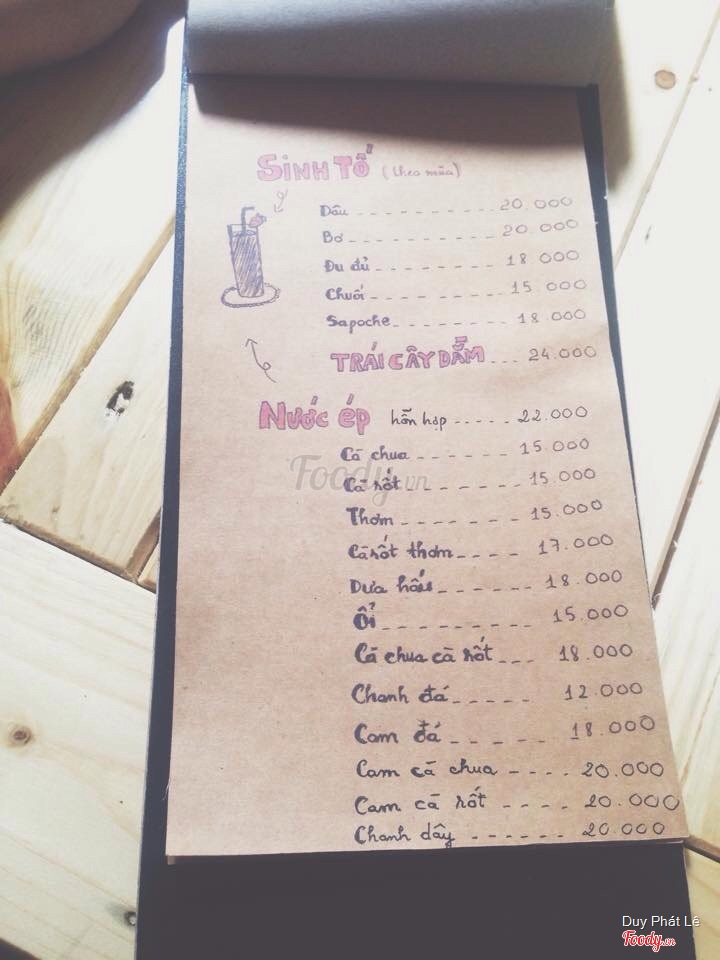 SINH TỐ (theo mùa)
Dâu - - - - - - - - - - 20.000
Bơ - - - - - - - - - - 20.000
Đu đủ - - - - - - - - 18.000
Chuối - - - - - - - - 15.000
Sapoche - - - - - - - 18.000
TRÁI CÂY DẦM - - - 24.000
Nước ép hỗn hợp - - - - - 22.000
Cà chua - - - - - - 15.000
Cà rốt - - - - - - 15.000
Thơm - - - - - - - 15.000
Cà rốt thơm - - - - 17.000
Dưa hấu - - - - - 18.000
Ổi - - - - - - - - 15.000
Cà chua cà rốt - - - 18.000
Chanh đá - - - - - 12.000
Cam đá - - - - - - 18.000
Cam cà chua - - - - 20.000
Cam cà rốt - - - - 20.000
Chanh dây - - - - - - 20.000
Foody.vn
Duy Phát Lê
Foody.vn